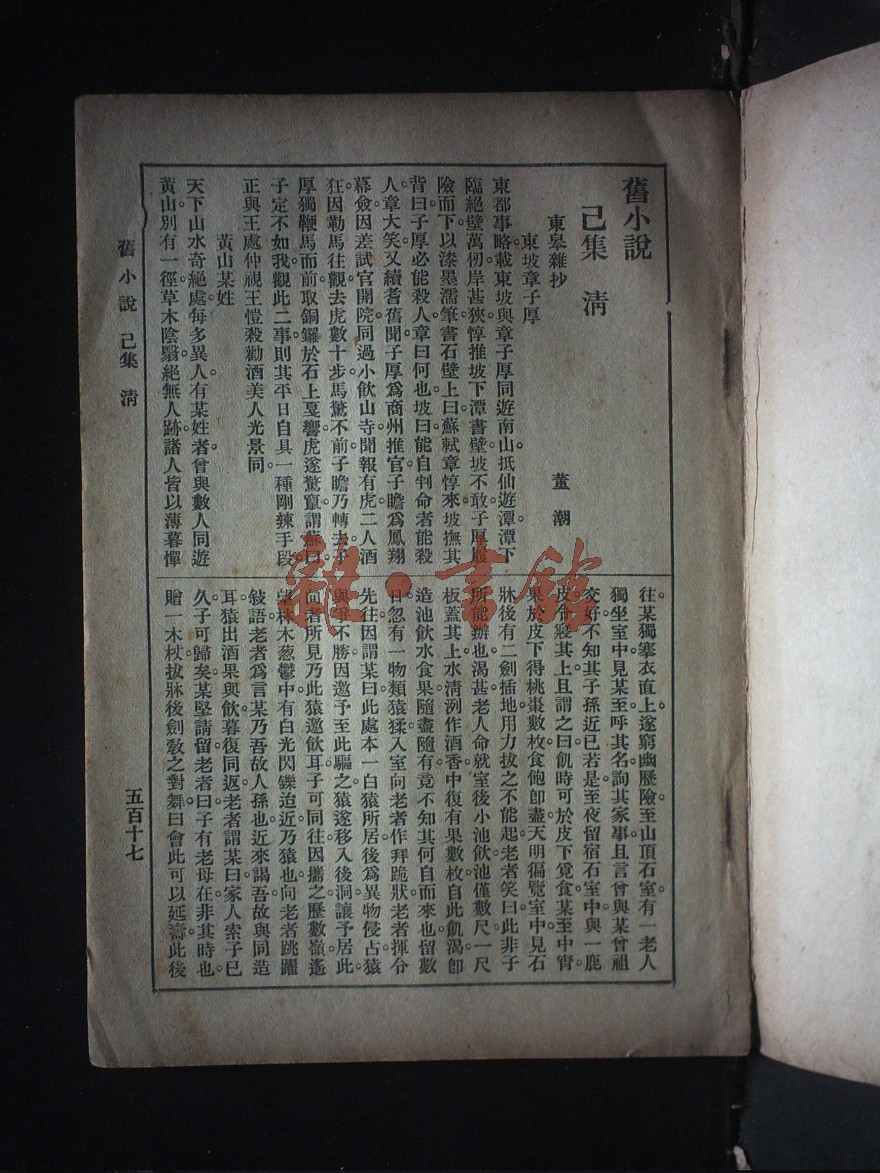 舊小說
己集　清
東皋雜抄　董潮
東坡章子厚
東都事略載東坡與章子厚同遊南山抵仙遊潭潭下
臨絕壁萬仞岸甚狹惇推坡下潭書壁坡不敢子厚履
險而下以漆墨濡筆書石壁上曰蘇軾章惇來坡撫其
背曰子厚必能殺人章曰何也坡曰能自判命者能殺
人章大笑又續耆舊聞子厚爲商州推官子瞻爲鳳翔
幕僉因差試官開院同過小飲山寺聞報有虎二人酒
狂因勒馬往觀去虎數十步馬驚不前子瞻乃轉去子
厚獨鞭馬而前取銅鑼於石上戛響虎遂驚竄謂蘇曰
子定不如我觀此二事則其平日自具一種剛辣手段
正與王處仲視王愷殺勸酒美人光景同
黃山某姓
天下山水奇絕處每多異人有某姓者曾與數人同遊
黃山別有一徑草木陰翳絕無人跡諸人皆以薄暮憚
往某獨搴衣直上遂窮幽歷險至山頂石室有一老人
獨坐室中見某至呼其名詢其家事且言曾與某曾祖
交好不知其子孫近已若是至夜留宿石室中與一鹿
皮令寢其上且謂之曰飢時可於皮下覓食某至中宵
果於皮下得桃棗數枚食飽卽盡天明徧覽室中見石
牀後有二劍插地用力拔之不能起老者笑曰此非子
所能辦也渴甚老人命就室後小池飲池僅數尺一尺
板蓋其上水清冽作酒香中復有果數枚自此飢渴卽
造池飲水食果隨盡隨有竟不知其何自而來也留數
日忽有一物類猿猱入室向老者作拜跪狀老者揮令
先往因謂某曰此處本一白猿所居後爲異物侵占猿
與爭不勝因邀予至此驅之猿遂移入後洞讓予居此
向者所見乃此猿邀飲耳子可同往因攜之歷數嶺遙
望林木葱鬱中有白光閃鑠迫近乃猿也向老者跳躍
敍語老者爲言某乃吾故人孫也近來謁吾故與同造
耳猿出酒果與飲暮復同返老者謂某曰家人索子已
久子可歸矣某堅請留老者曰子有老母在非其時也
贈一木杖拔牀後劍敎之對舞曰會此可以延壽此後
舊小說　己集　清
五百十七